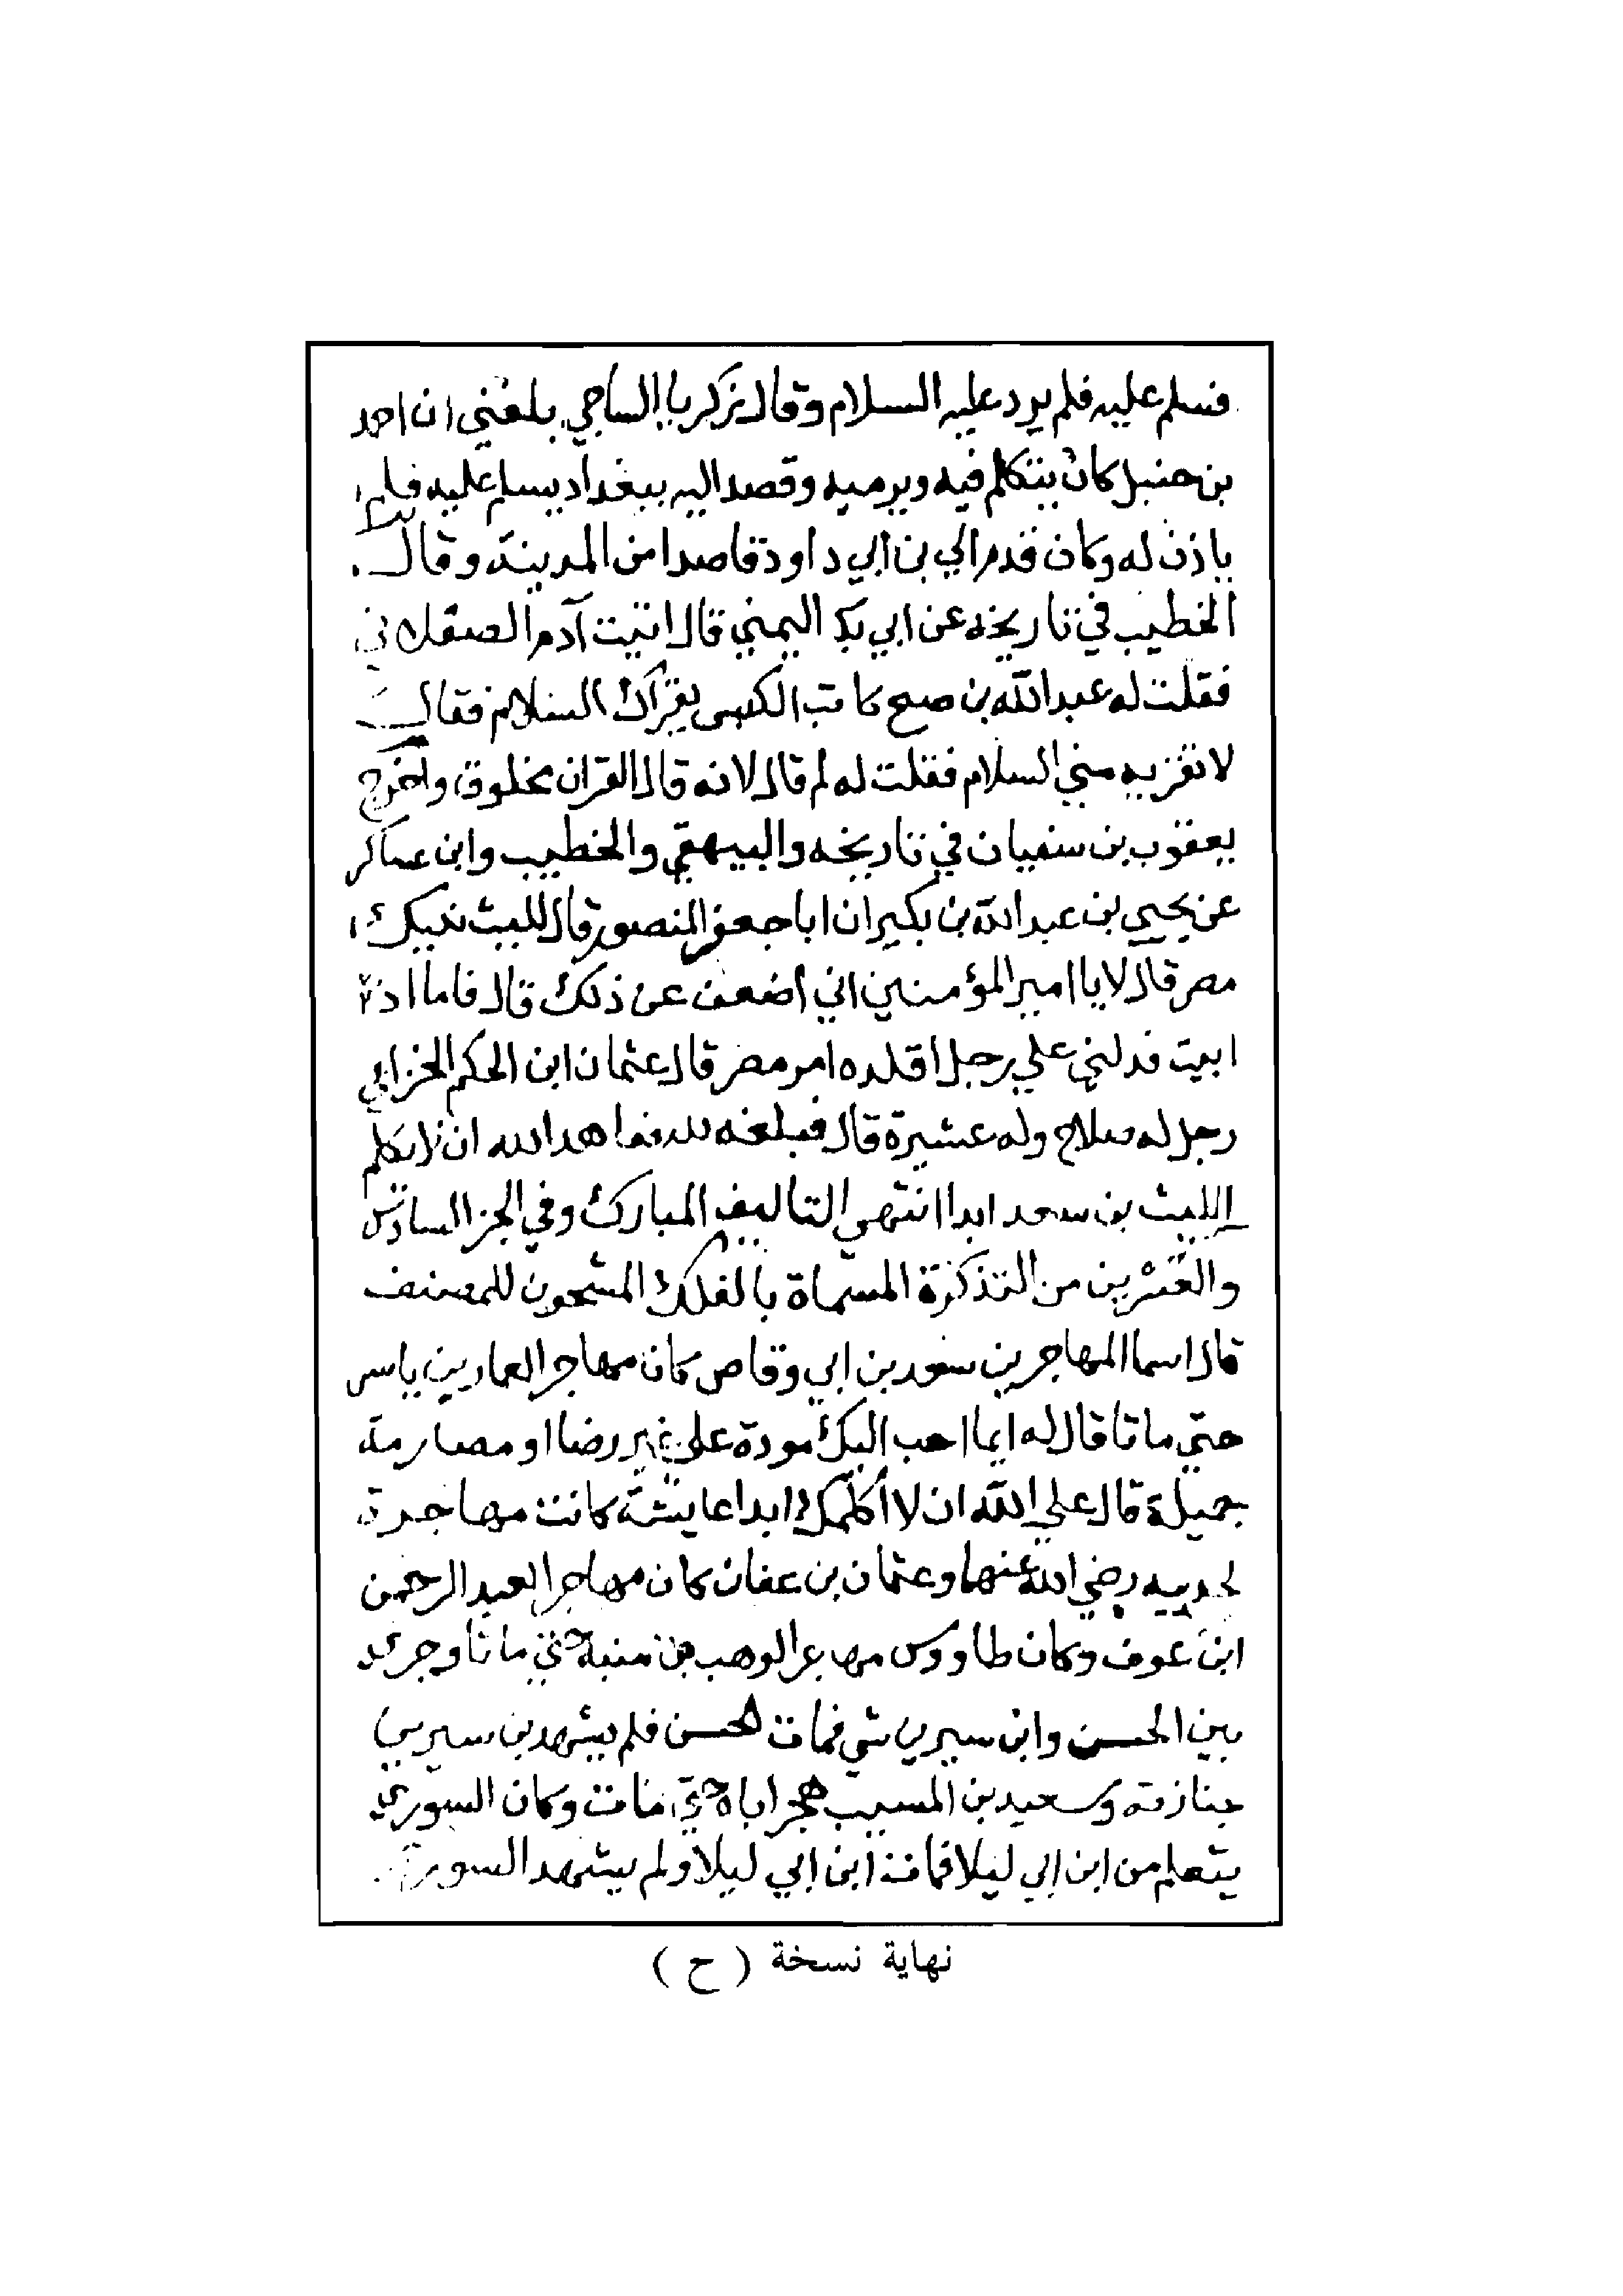 فسلم عليه فلم يرد عليه السلام وقال زكريا الساجي بلغني ان احمد
بن حنبل كان يتكلم فيه ويرميه وقصد اليه ببغداد يسلم عليه فلم
ياذن له وكان قدم الي بن ابي داود قاصدا من المدينة وقال
الخطيب في تاريخه عن ابي بكر اليمني قال اتيت آدم
فقلت له عبد الله بن صح كاتب يقرأك السلام فقال
لا تقريه مني السلام فقلت له لم قال لانه قال القران مخلوق واخرج
يعقوب بن سفيان في تاريخه والبيهقي والخطيب وابن عساكر
عن يحيي بن عبد الله بن بكير ان ابا جعفر المنصور قال لليث
مصر قال لا يا امير المؤمنين اني اضعف عن ذلك قال فاما اذا
ابيت فدلني علي رجل اقلده امر مصر قال عثمان ابن الحكم
رجل له صلاح وله عشيرة قال فبلغه ان لا يكلم
الليث بن سعد ابدا انتهي التاليف المبارك وفي الجز السادس
والعشرين من التذكرة المسماة بالفلك المشحون للمصنف
قال اسما المهاجرين سعد بن ابي وقاص كان مهاجر العمار بن ياسر
حتي ماتا قال له ايما احب اليك مودة علي غير رضا او مصارمة
جميلة قال علي الله ان لا اكلمك ابدا عايشة كانت مهاجرة
رضي الله عنها وعثمان بن عفان كان مهاجرا لعبد الرحمن
ابن عوف وكان طاووس لوهب بن منبه حتي ماتا وجري
بين الحسن وابن سيرين شي فمات الحسن فلم يشهد بن سيرين
جنازته وسعيد بن المسيب هجر اباه حتي مات وكان السوري
يتعلم من ابن ابي ليلا فمات ابن ابي ليلا ولم يشهد السوري
نهاية نسخة ( ح )